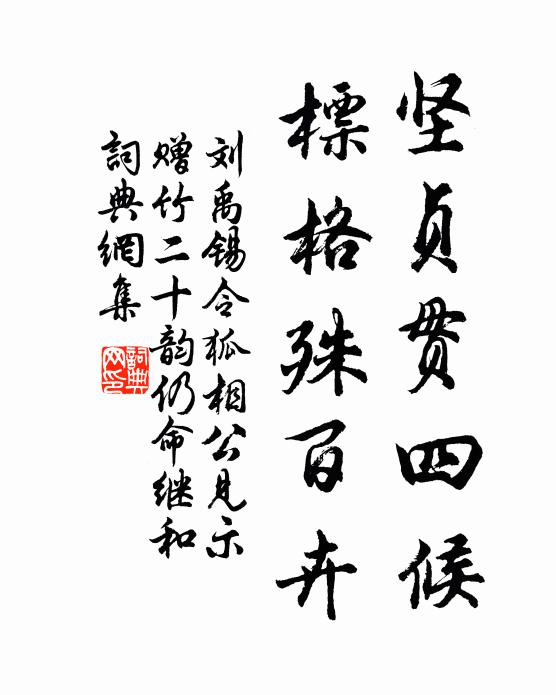 坚贞贯四候
標格殊百卉
刘禹锡令狐相公見示
赠竹二十韵仍命继和
詞典網集
詞典
网印